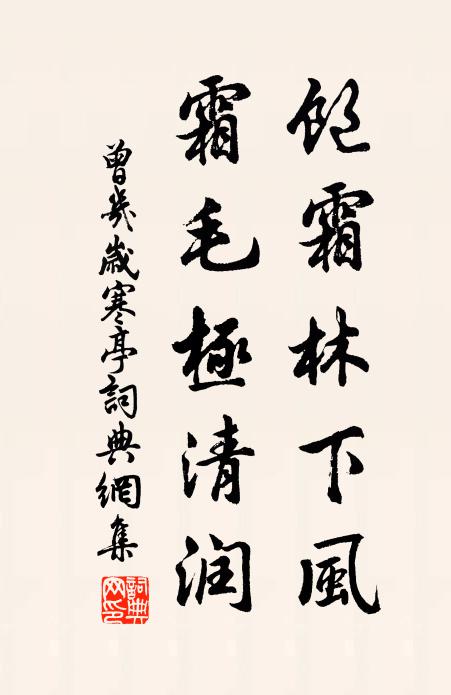 飽霜林下風
霜毛極清潤
曾幾歲寒亭詞典網集
詞典網印